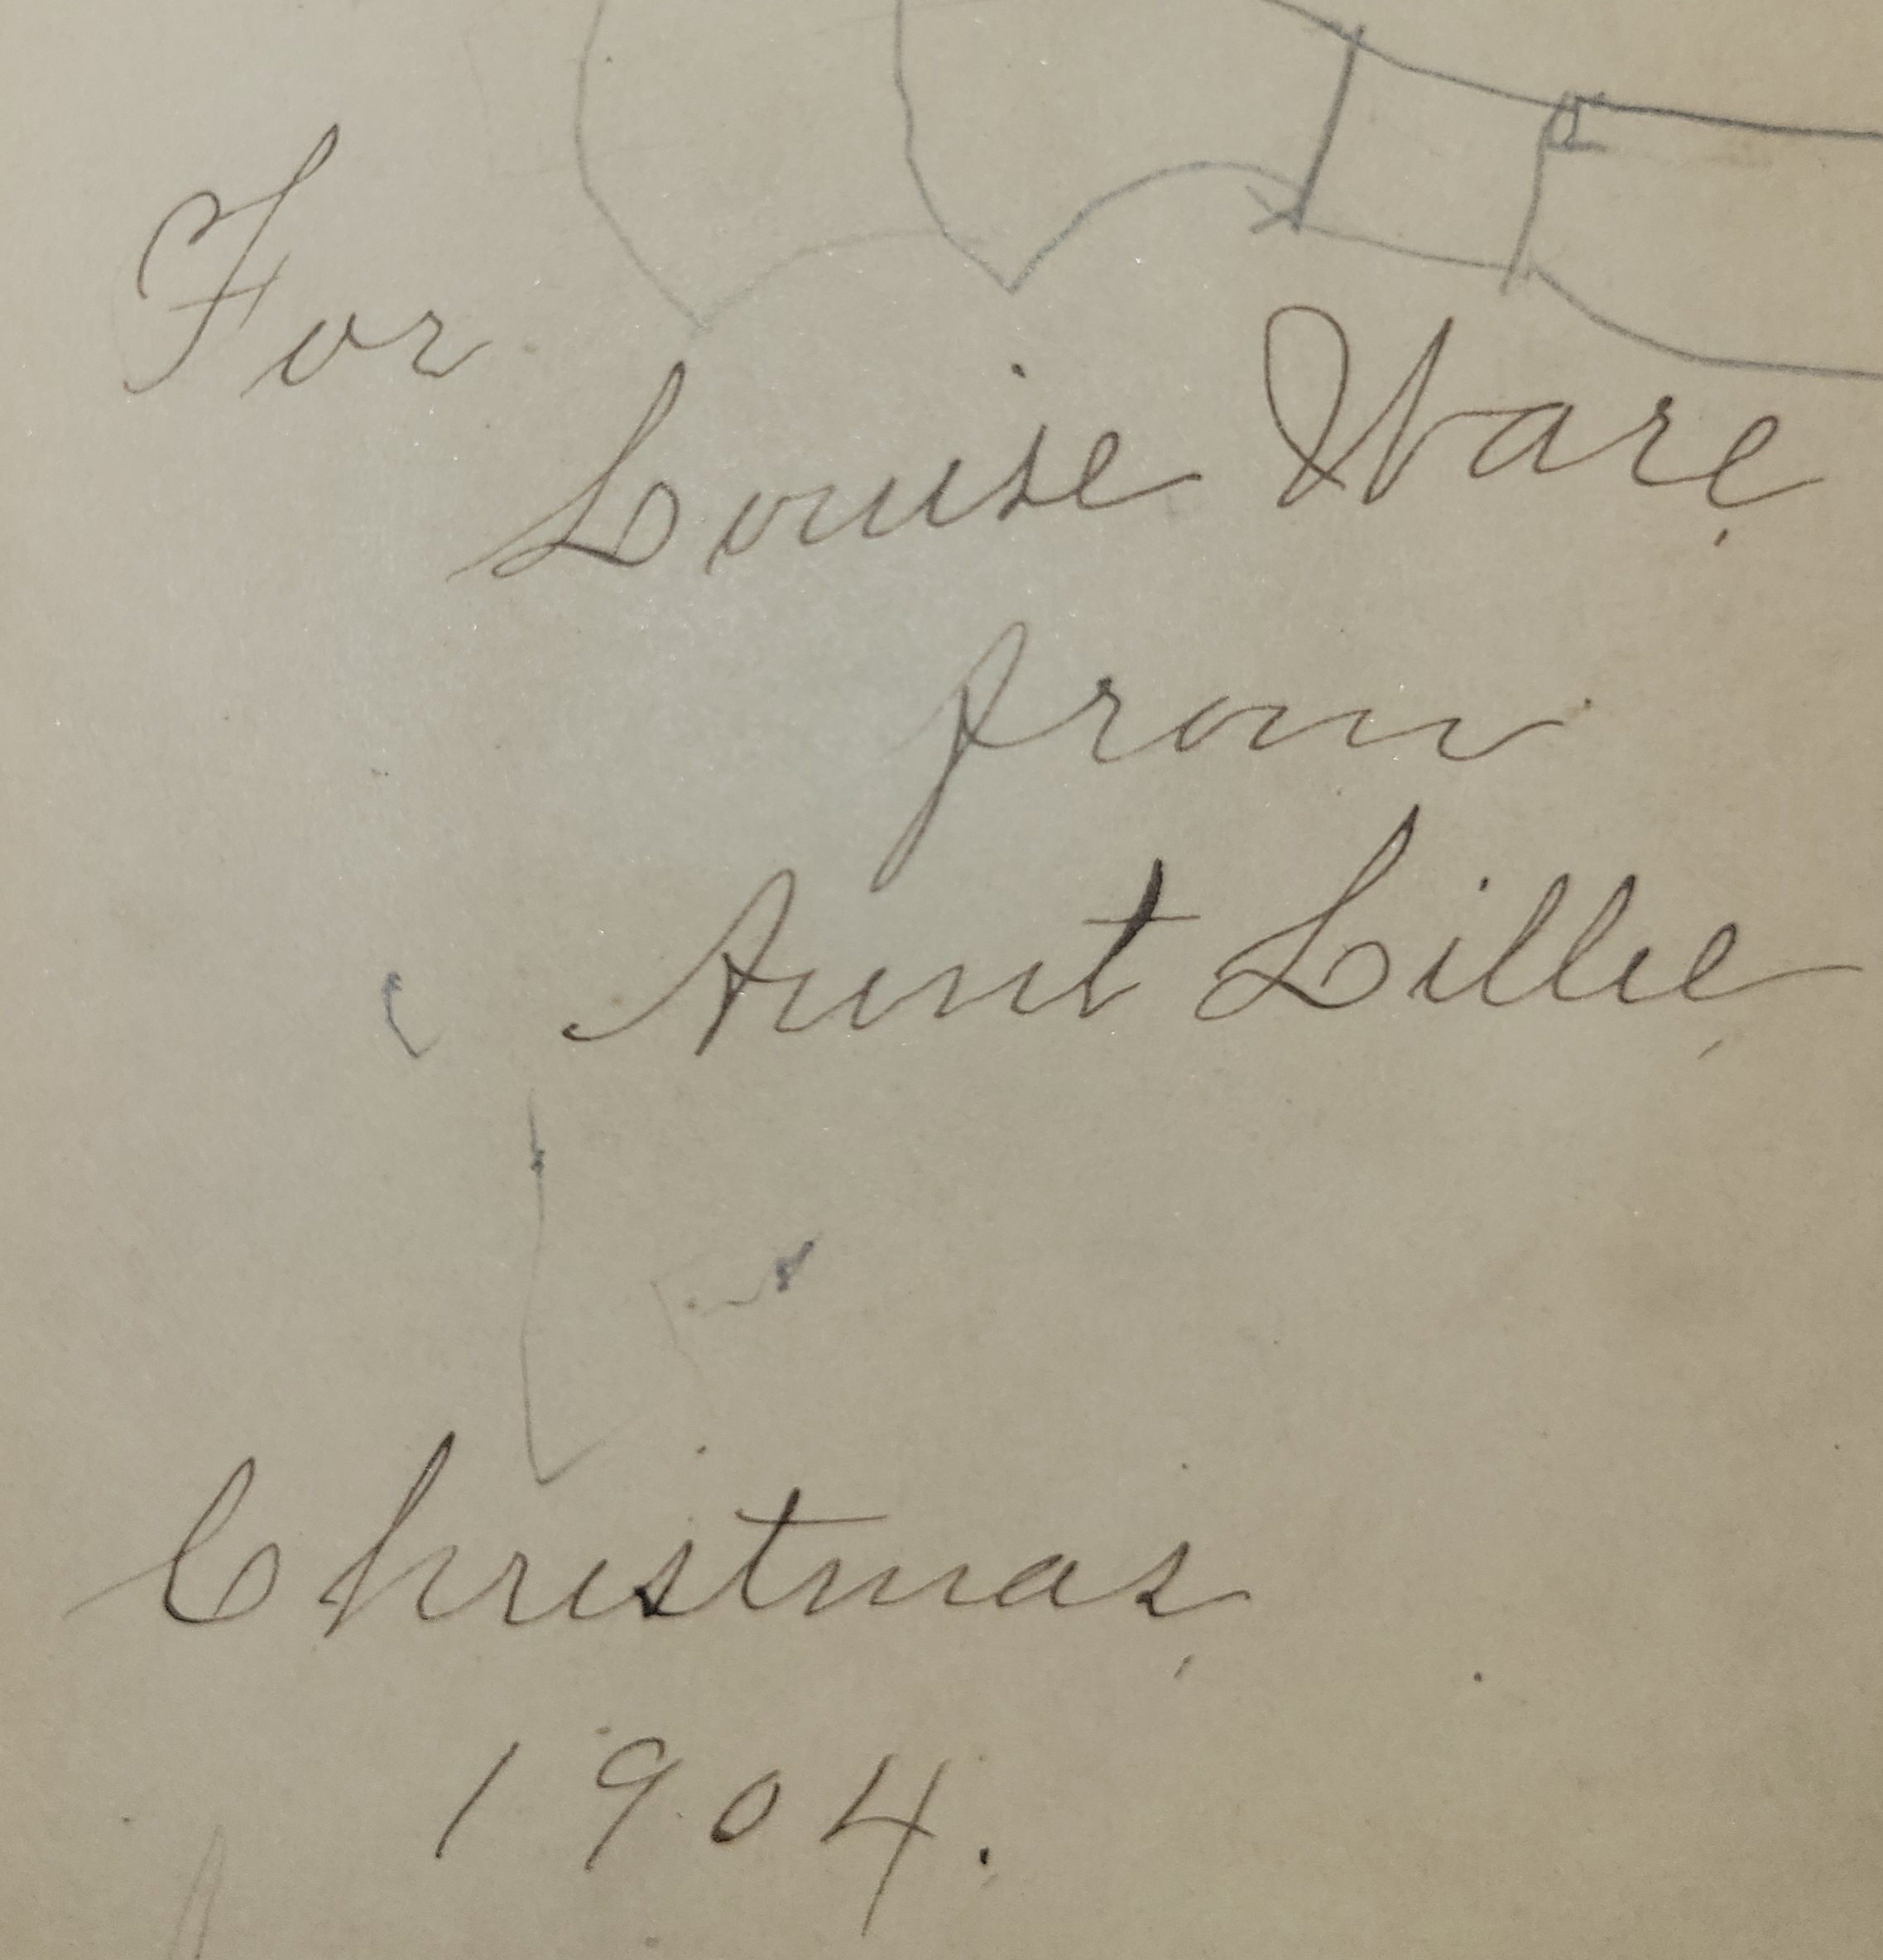 For
Louise Ware,
from
Aunt Lillie,
Christmas,
1904.